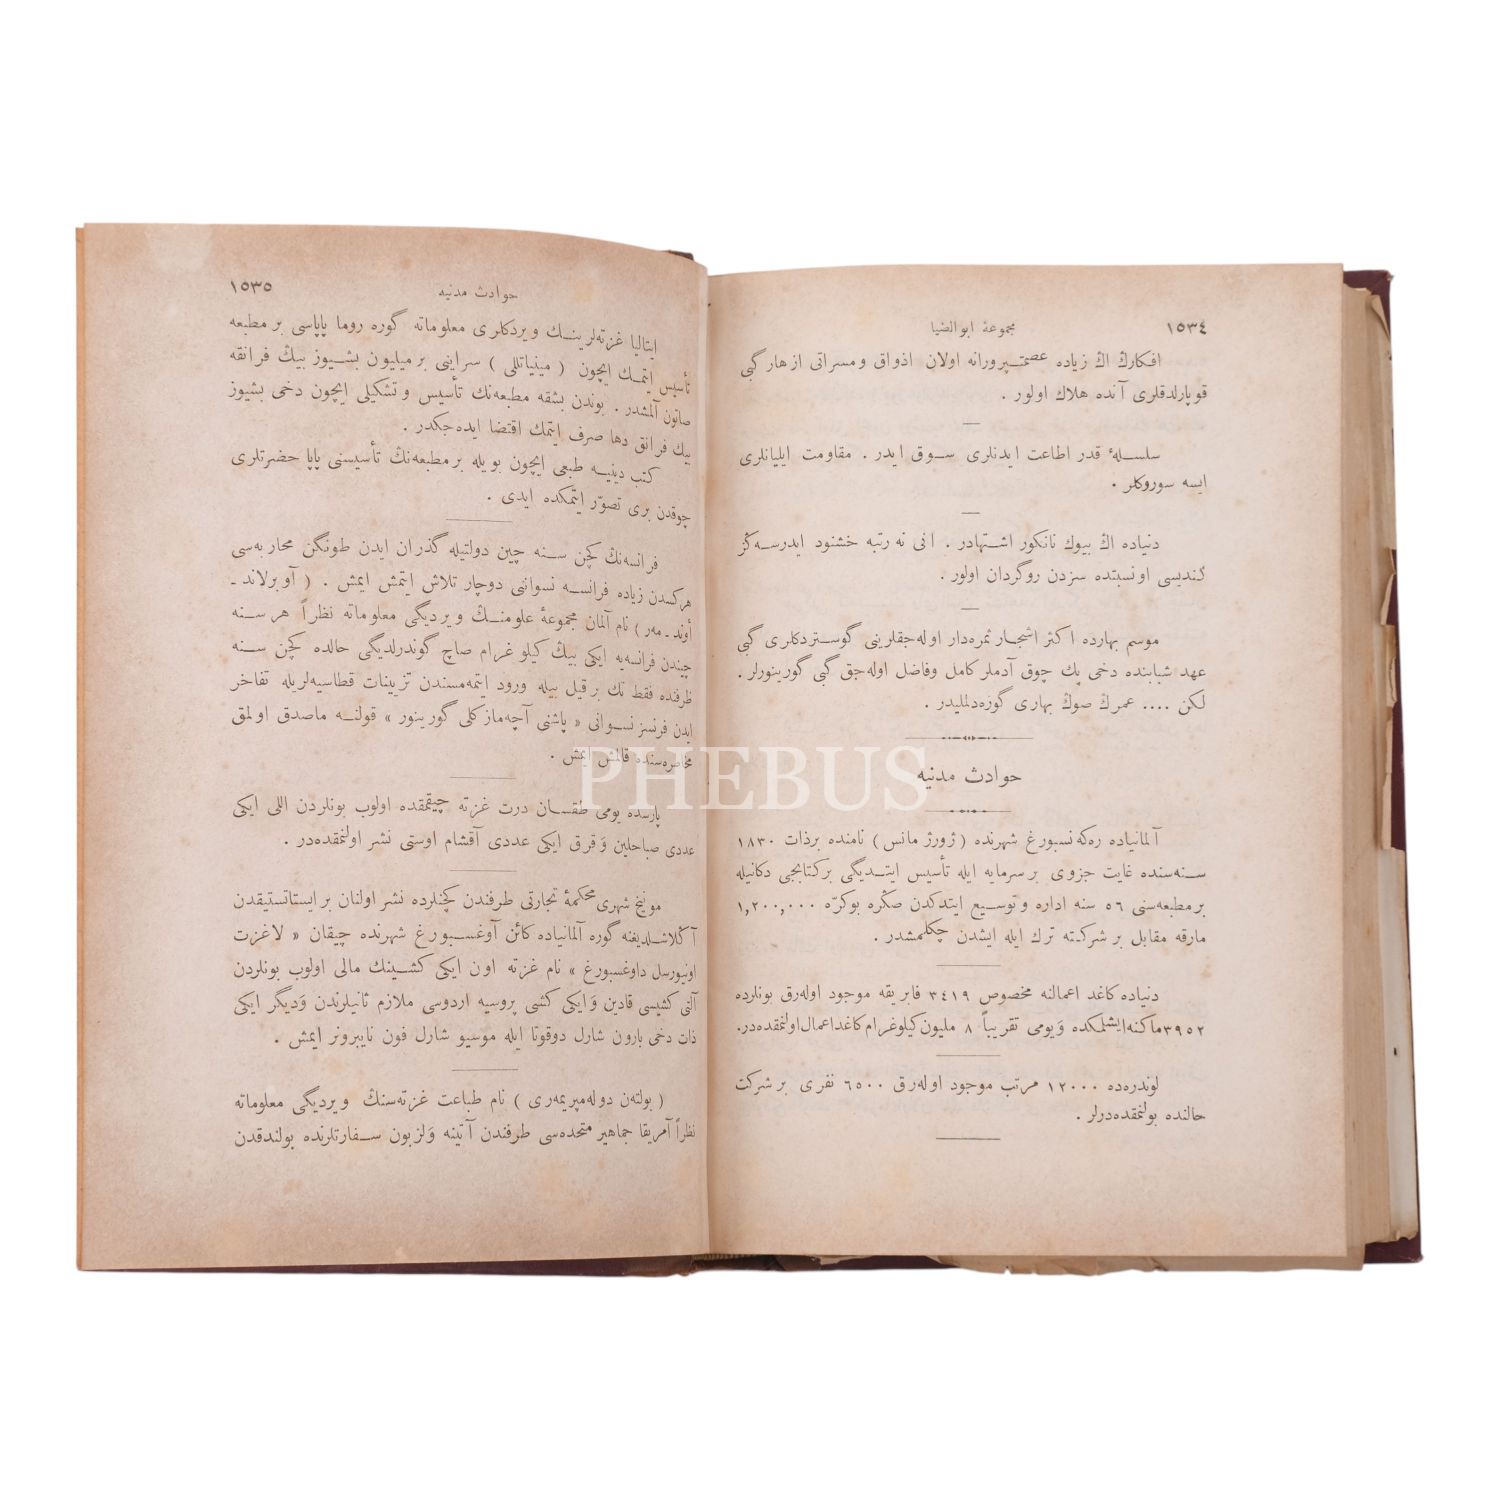 ١٥٣٤
مجموعۀ ابوالضيا
افكارك اك زياده عصمتپرورانه اولان اذواق ومسراتى ازهار گبى
قوپارلدقلرى آنده هلاك اولور .
سلسلۀ قدر اطاعت ايدنلرى سوق ايدر . مقاومت ايليانلرى
ايسه سوروكلر .
دنياده اڭ بيوك نانكور اشتهادر . انى نه رتبه خشنود ايدرسه‌ڭز
كنديسى اونسبتده سزدن روگردان اولور .
موسم بهارده اكثر اشجار ثمره‌دار اوله‌جقلرينى گوستردكلرى گبى
عهد شبابنده دخى پك چوق آدملر كامل وفاضل اوله‌جق گبى گورينورلر .
لكن .... عمرك صوڭ بهارى گوره‌دلمليدر .
حوادث مدنيه
آلمانياده ره‌كه نسبورغ شهرنده ( ژورژ مانس ) نامنده برذات ١٨٣٠
سنه‌سنده غايت جزوى برسرمايه ايله تأسيس ايتديگى بركتابجى دكانيله
برمطبعه‌سنى ٥٦ سنه اداره وتوسيع ايتدكدن صڭره بوكرّه ١,٢٠٠,٠٠٠
مارقه مقابل بر شركته ترك ايله ايشدن چكلمشدر .
دنياده كاغد اعمالنه مخصوص ٣٤١٩ فابريقه موجود اوله‌رق بونلرده
٣٩٥٢ ماكنه ايشلمكده وَيومى تقريباً ٨ مليون كيلوغرام كاغد اعمال اولنمقده‌در.
لوندره‌ده ١٢٠٠٠ مرتب موجود اوله‌رق ٦٥٠٠ نفرى بر شركت
حالنده بولنمقده‌درلر .
حوادث مدنيه
١٥٣٥
ايتاليا غزته‌لرينـك ويردكلرى معلوماته گوره روما پاپاسى بر مطبعه
تأسيس ايتمـك ايچون ( مينياتللى ) سراينى بر ميليون بشيوز بيڭ فرانقه
صاتون آلمشدر . بوندن بشقه مطبعه‌نك تأسيس وتشكيلى ايچون دخى بشيوز
بيك فرانق دها صرف ايتمك اقتضا ايده‌جكدر .
كتب دينيـه طبعى ايچون بويله بر مطبعه‌نڭ تأسيسنى پاپا حضرتلرى
چوقدن برى تصوّر ايتمكده ايدى .
فرانسه‌نڭ كچن سنه چين دولتيله گذران ايدن طونگن محاربه‌سى
هركسدن زياده فرانسـه نسواننى دوچار تلاش ايتمش ايمش . ( آوبرلاند ـ
أوند ـ مه‌ر ) نام آلمان مجموعۀ علومنـڭ ويرديگى معلوماته نظراً هر سـنه
چيندن فرانسه‌يه ايكى بيڭ كيلو غرام صاچ گوندرلديگى حالده كچن سـنه
ظرفنده فقط تك بر قيل بيله ورود ايتمه‌مسندن تزيينات قطاسيه‌لريله تفاخر
ايدن فرنسز نسوانى « پاشنى آچه‌ماز كلى گورينور » قولنـه ماصدق اولمق
مخاطره‌سنده قالمش ايمش .
پارسده يومى طقسان درت غزته چيقمقده اولوب بونلردن اللى ايكى
عددى صباحلين وَقرق ايكى عددى آقشام اوستى نشر اولنمقده‌در .
مونيخ شهرى محكمۀ تجارتى طرفندن كچنلرده نشر اولنان بر ايستاتستيقدن
آڭلاشلديغنه گوره آلمانياده كائن آوغسبورغ شهرنده چيقان « لاغزت
اونيورسل داوغسبورغ » نام غزته اون ايكى كشينك مالى اولوب بونلردن
آلتى كشيسى قادين وَايكى كشى پروسيه اردوسى ملازم ثانيلرندن وَديگر ايكى
ذات دخى بارون شارل دوقوتا ايله موسيو شارل فون نايبرونر ايمش .
( بولته‌ن دوله‌مپريمه‌رى ) نام طباعت غزته‌سنك ويرديگى معلوماته
نظراً آمريقا جماهير متحده‌سى طرفندن آتينه وَلزبون سفارتلرنده بولندقدن
PHEBUS